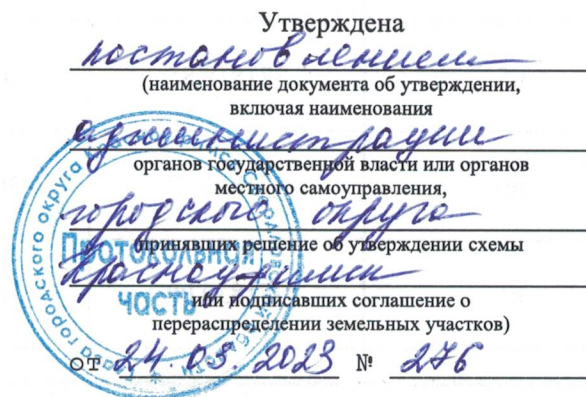 Утверждена
постановлением
(наименование документа об утверждении,
включая наименования
администрации
органов государственной власти или органов
местного самоуправления,
городского округа
принявших решение об утверждении схемы
Красноуфимск
или подписавших соглашение о
перераспределении земельных участков)
от 24.03.2023 № 276
Протокольная
часть
городского округа